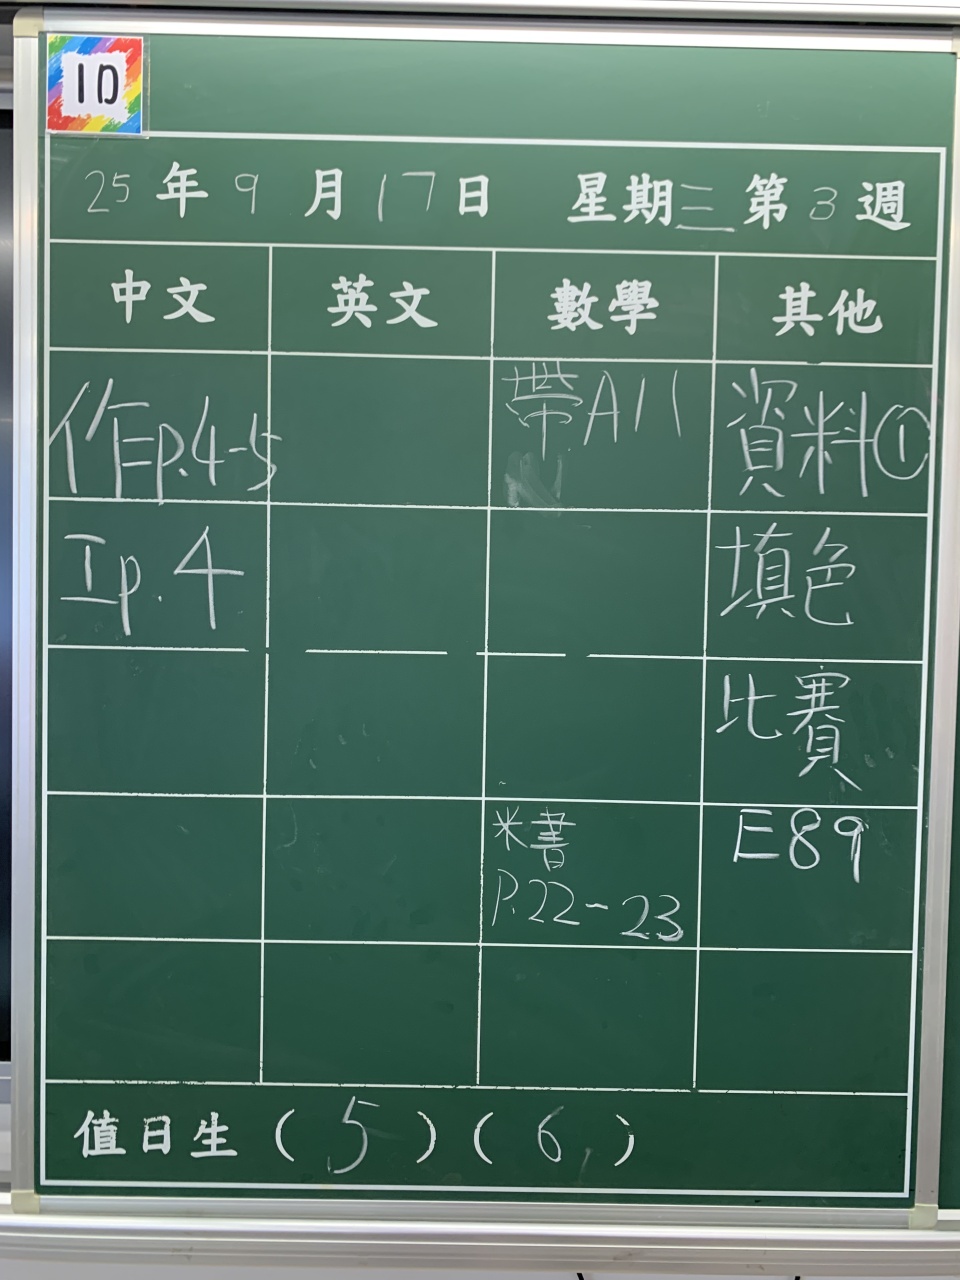 1D
25年9月17日 星期三第3週
中文 英文 數學 其他
作p.4-5 帶A11 資料①
工p.4 填色
比賽
米書 E89
P.22-23
值日生(5)(6)